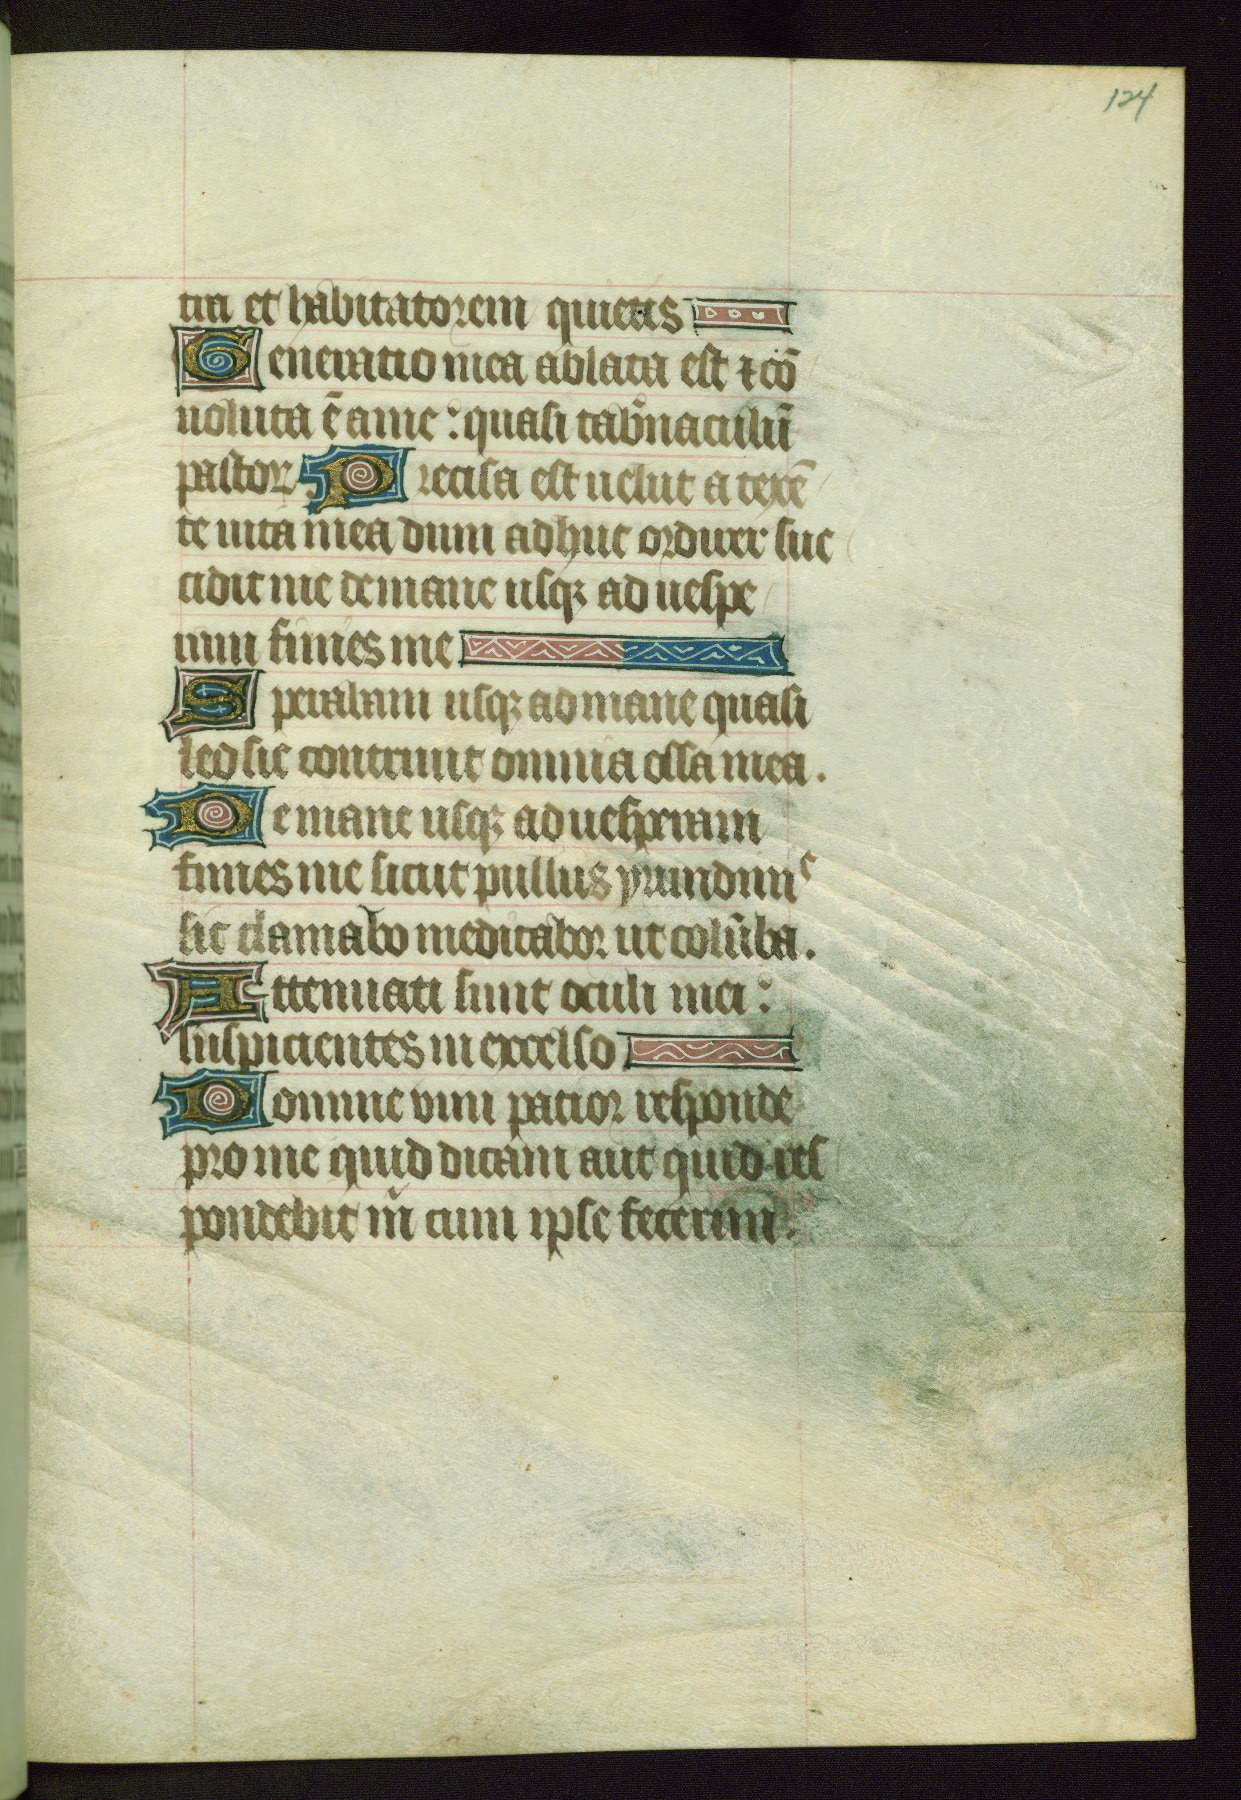 124
tra et habitatorem quietis
Generatio mea ablata est ⁊ cō
uoluta ē a me : quasi tab̄naculū
pastor. Precisa est uelut a texē
te uita mea dum adhuc ordirer suc
cidit me de mane usqꝫ ad uespe
ram finies me
Sperabam usqꝫ ad mane quasi
leo sic contriuit omnia ossa mea.
De mane usqꝫ ad uesperam
finies me sicut pullus yrundinis
sic clamabo meditabor ut colūba.
Attenuati sunt oculi mei :
suspicientes in excelso
Domine uim patior responde
pro me quid dicam aut quid res
pondebit m̄ cum ipse fecerim.